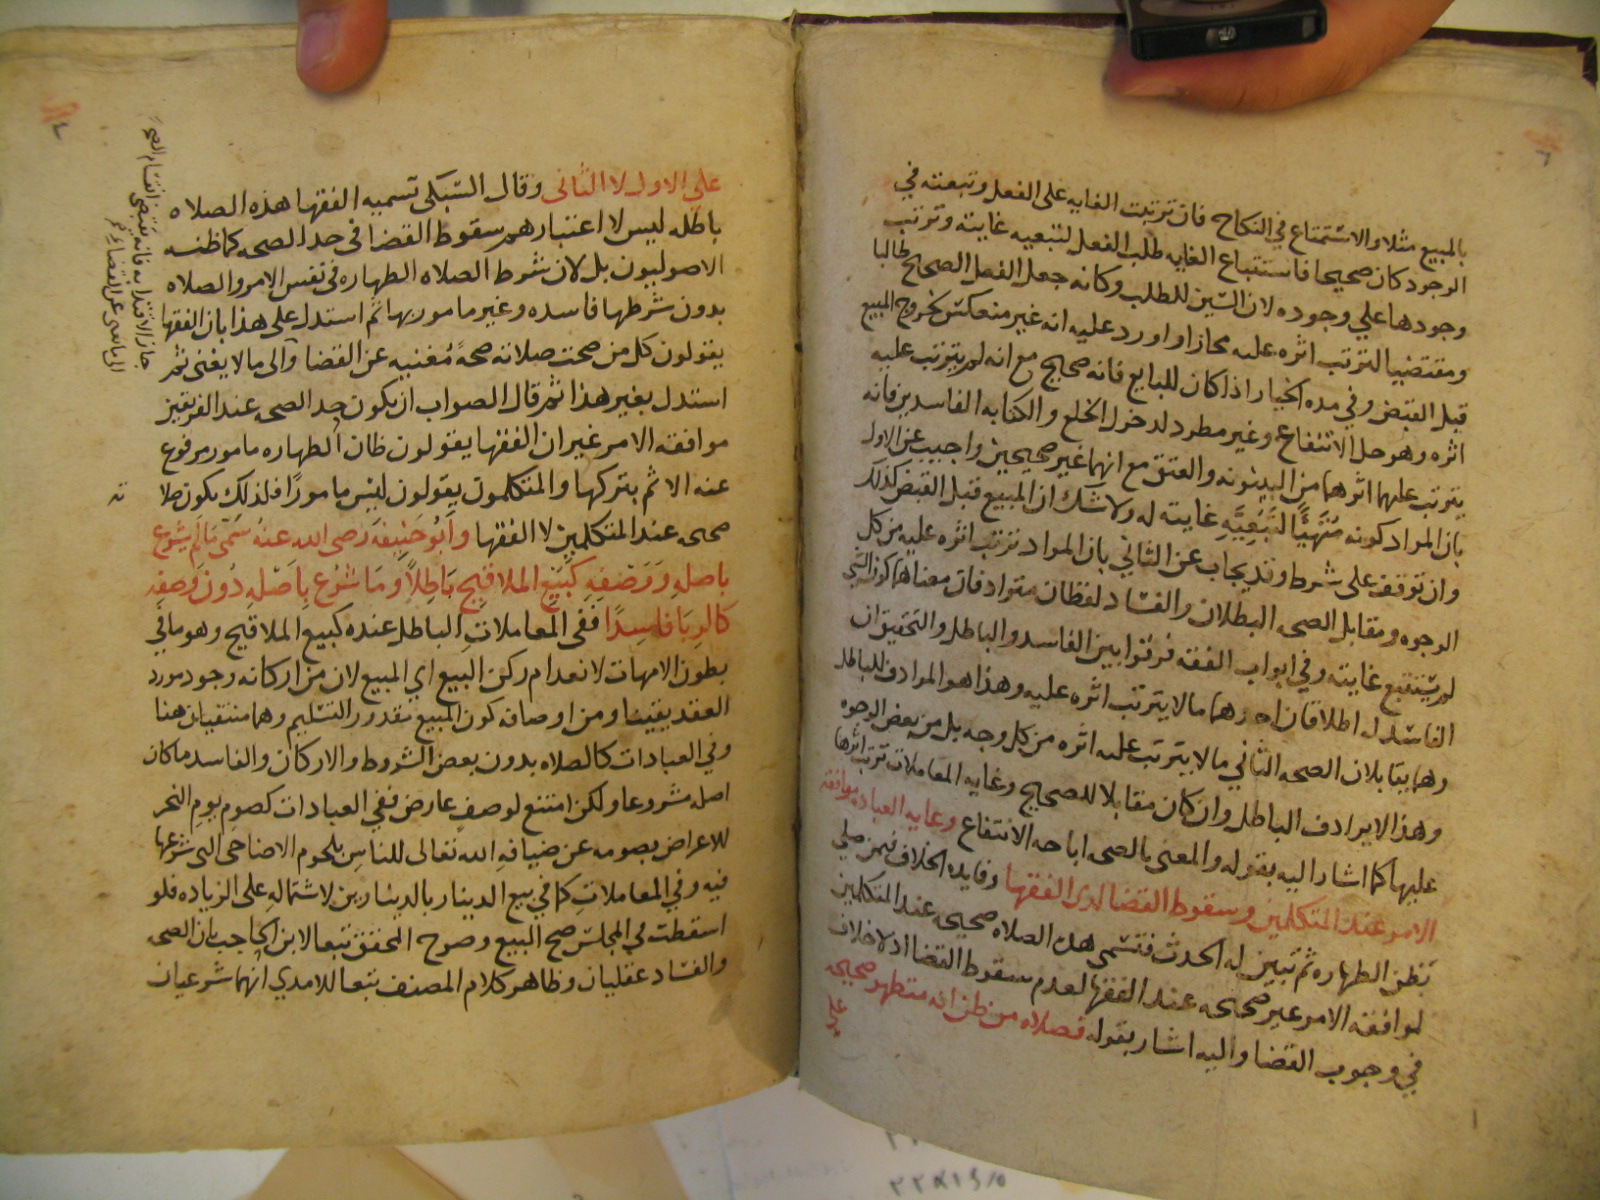 بالمبيع مثلا والاستمتاع في النكاح فان ترتبت الغايه على الفعل وتبعته في
الوجود كان صحيحا فاستتباع الغايه طلب الفعل لتبعيه غايته وترتب
وجودها علي وجوده لان السين للطلب وكانه جعل الفعل الصحيح طالبا
ومقتضيا لترتب اثره عليه مجازا واورد عليه انه غير منعكس لخروج المبيع
قبل القبض وفي مده الخيار اذا كان للبايع فانه صحيح مع انه لم يترتب عليه
اثره وهو حل الانتفاع وغير مطرد لدخول الخلع والكتابه الفاسدين فانه
يترتب عليهما اثرهما من البينونه والعتق مع انهما غير صحيحين واجيب عن الاول
بان المراد كونه مُتَهَيِّئًا لتَبَعِيَّهِ غايته له ولا شك ان المبيع قبل القبض كذلك
وان توقف على شرط وقد يجاب عن الثاني بان المراد ترتب اثره عليه من كل
الوجوه ومقابل الصحه البطلان والفساد لفظان مترادفان معناهما كون الشي
لم يستتبع غايته وفي ابواب الفقه فرقوا بين الفاسد والباطل والتحقيق ان
الفاسد له اطلاقان احدهما ما لا يترتب اثره عليه وهذا هو المرادف للباطل
وهما يقابلان الصحه الثاني ما لا يترتب عليه اثره من كل وجه بل من بعض الوجوه
وهذا لا يرادف الباطل وان كان مقابلا للصحيح وغايه المعاملات ترتب اثرها
عليها كما اشار اليه بقوله والمعنى بالصحه اباحه الانتفاع وغايه العباده موافقه
الامر عند المتكلمين وسقوط القضا لدى الفقها وفايده الخلاف فيمن صلي
بظن الطهاره ثم تبين له الحدث فتسمى هذه الصلاه صحيحه عند المتكلمين
لموافقه الامر غير صحيحه عند الفقها لعدم سقوط القضا اذ لا خلاف
في وجوب القضا واليه اشار بقوله فصلاه من ظن انه متطهر صحيحه
علي
علي الاول لا الثاني وقال السبكي تسميه الفقها هذه الصلاه
باطله ليس لاعتبارهم سقوط القضا في حد الصحه كما ظنه
الاصوليون بل لان شرط الصلاه الطهاره في نفس الامر والصلاه
بدون شرطها فاسده وغير مامور بها ثم استدل علي هذا بان الفقها
يقولون كل من صحت صلاته صحةً مُغنيه عن القضا والى ما لا يغنى ثم
استدل بغير هذا ثم قال الصواب ان يكون حد الصحه عند الفريقين
موافقه الامر غير ان الفقها يقولون ظان الطهاره مامور مرفوع
عنه الاثم بتركها والمتكلمون يقولون ليس مامورًا فلذلك يكون صلا
ته
صحيحه عند المتكلمين لا الفقها وابُو حَنِيفَه رضى الله عنهُ سَمَّى مَا لم يشرع
باصلهِ وَوَصْفِهِ كبَيْعِ الملاقيح بَاطِلاً ومَا شُرع بِاَصْلهِ دُونَ وَصفِه
كالرِبَا فاسِدًا ففي المعاملاتِ الباطل عنده كبيع الملاقيح وهو ما في
بطون الامهات لانعدام ركن البيع اي المبيع لان من اركانه وجود مورد
العقد يقينا ومن اوصافه كون المبيع مقدور التسليم وهما منتفيان هنا
وفي العبادات كالصلاه بدون بعض الشروط والاركان والفاسد ما كان
اصله مشروعا ولكن امتنع لوصفٍ عارض ففي العبادات كصوم يوم النحر
للاعراض بصومه عن ضيافهِ الله تعالى للناسِ بلحوم الاضاحى التى شرعها
فيه وفي المعاملاتِ كما في بيع الدينار بالدينارين لاشتماله على الزياده فلو
اسقطت في المجلس صح البيع وصرح المحقق تبعا لابن الحاجب بان الصحه
والفساد عقليان وظاهر كلام المصنف تبعا للامدي انهما شرعيان